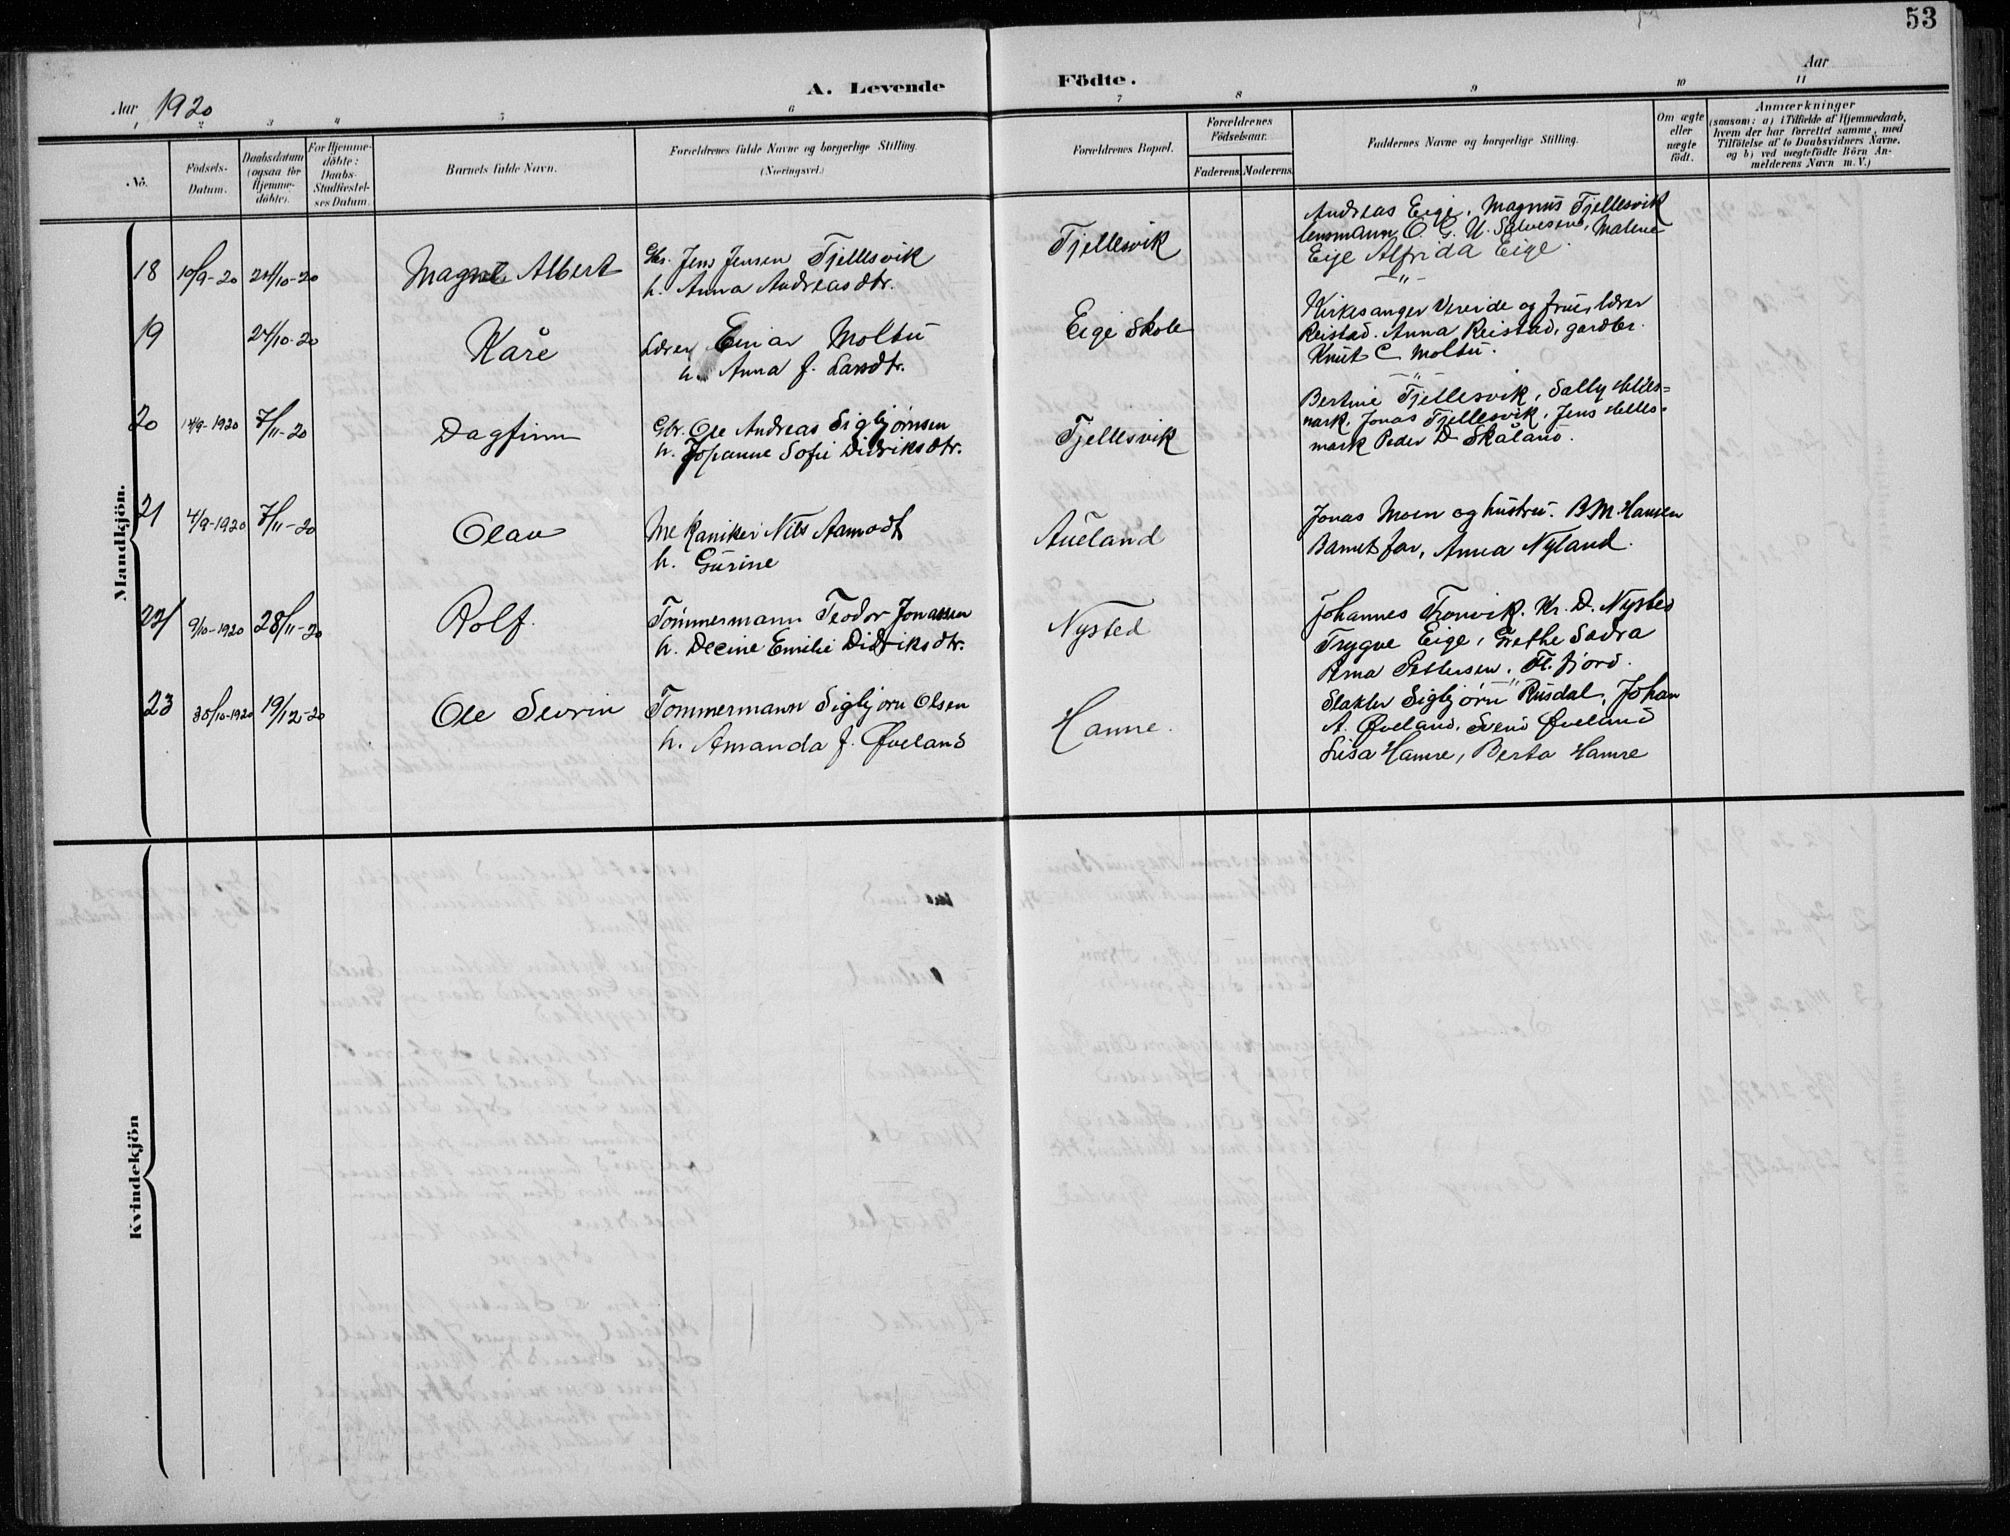 53
A. Levende Födte.
Aar 1920
Aar
1 2 3 4 5 6 7 8 9 10 11
No.
Födsels-
Datum.
Daabsdatum
(ogsaa for
Hjemme-
döbte).
For Hjemme-
döbte:
Daabs-
Stadfæstel-
ses Datum.
Barnets fulde Navn.
Forældrenes fulde Navne og borgerlige Stilling.
(Næringsvei.)
Forældrenes Bopæl.
Forældrenes
Födselsaar.
Faderens. Moderens.
Faddernes Navne og borgerlige Stilling.
Om ægte
eller
uægte
födt.
Anmærkninger
(saasom: a) i Tilfælde af Hjemmedaab,
hvem der har forrettet samme, med
Tilföielse af to Daabsvidners Navne,
og b) ved uægtefödte Börn An-
melderens Navn m. V.)
Mandkjön.
18 10/9-20 24/10-20 Magne Albert
Gbr. Jens Jensen Tjellesvik
h. Anna Andreasdtr.
Tjellesvik
Andreas Eige, Magnus Tjellesvik
lensmann O. G. U. Salvesen, Malene
Eige Alfrida Eige.
19 24/10-20 Kåre
Lærer Einar Moltu
h. Anna f. Larsdtr.
Eige Skole
Kirkesanger Vereide og frue, lærer
Reistad. Anna Reistad, gardbr.
Knut C Moltu.
20 14/9-1920 7/11-20 Dagfinn
Gbr. Ole Andreas Sigbjørnsen
h. Johanne Sofie Didriksdtr.
Tjellesvik
Bertine Tjellesvik, Sally Helles=
mark, Jonas Tjellesvik, Jens Helles-
mark Peder D Skåland.
21 4/9-1920 7/11-20 Olav
Mekaniker Nils Aamodt
h. Gurine
Aueland
Jonas Moen og hustru. B. M. Hansen
Barnets far, Anna Nyland.
22 9/10-1920 28/11-20 Rolf.
Tømmermann Teodor Jonassen
h. Decine Emilie Didriksdtr.
Nysted
Johannes Tronvik. Kr. D. Nysted
Trygve Eige, Grethe Sadra
Arna Pettersen, Fl. fjord.
23 30/10-1920 19/12-20 Ole Sevrin
Tømmermann Sigbjørn Olsen
h. Amanda f. Øveland
Hamre.
Slakter Sigbjørn Rusdal, Johan
A. Øveland, Svend Øveland
Lisa Hamre, Berta Hamre
Kvindekjön